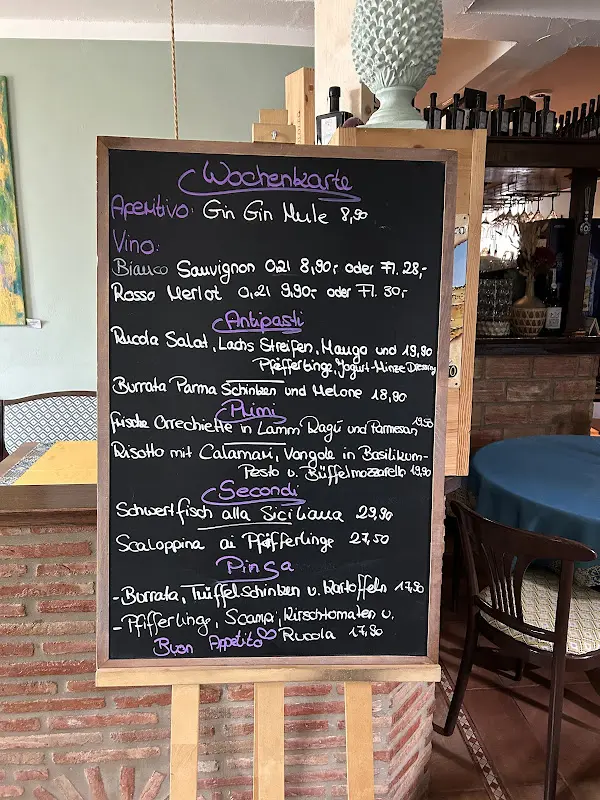 Wochenkarte
Aperitivo: Gin Gin Mule 8,90
Vino:
Bianco Sauvignon 0,2l 8,90,- oder Fl. 28,-
Rosso Merlot 0,2l 9,90,- oder Fl. 30,-
Antipasti
Rucola Salat, Lachs Streifen, Mango und 19,90
Pfifferlinge, Joguft-Minze Dressing
Burrata Parma Schinken und Melone 18,90
Primi
frische Orrechiette in Lamm Ragú und Parmesan 19,50
Risotto mit Calamari, Vongole in Basilikum-
Pesto u. Büffelmozzarella 19,90
Secondi
Schwertfisch alla Siciliana 29,90
Scaloppina ai Pfifferlinge 27,50
Pinsa
- Burrata, Trüffelschinken u. Kartoffeln 17,90
- Pfifferlinge, Scampi, Kirschtomaten u.
Rucola 17,90
Buon Appetito